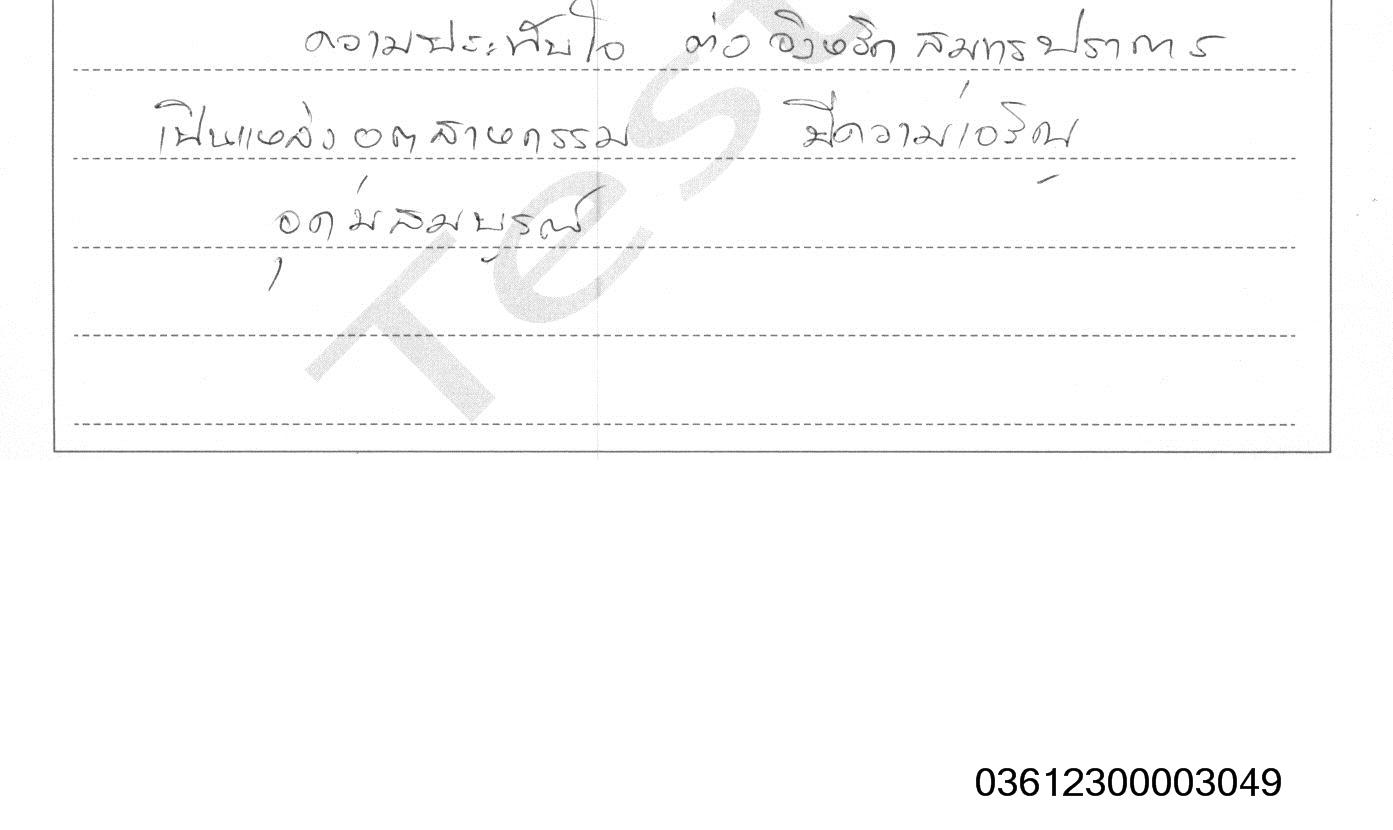 ความประทับใจ ต่อ จังหวัด สมุทรปราการ
เป็นแหล่ง อุตสาหกรรม มีความเจริญ
อุดมสมบูรณ์
Test
03612300003049